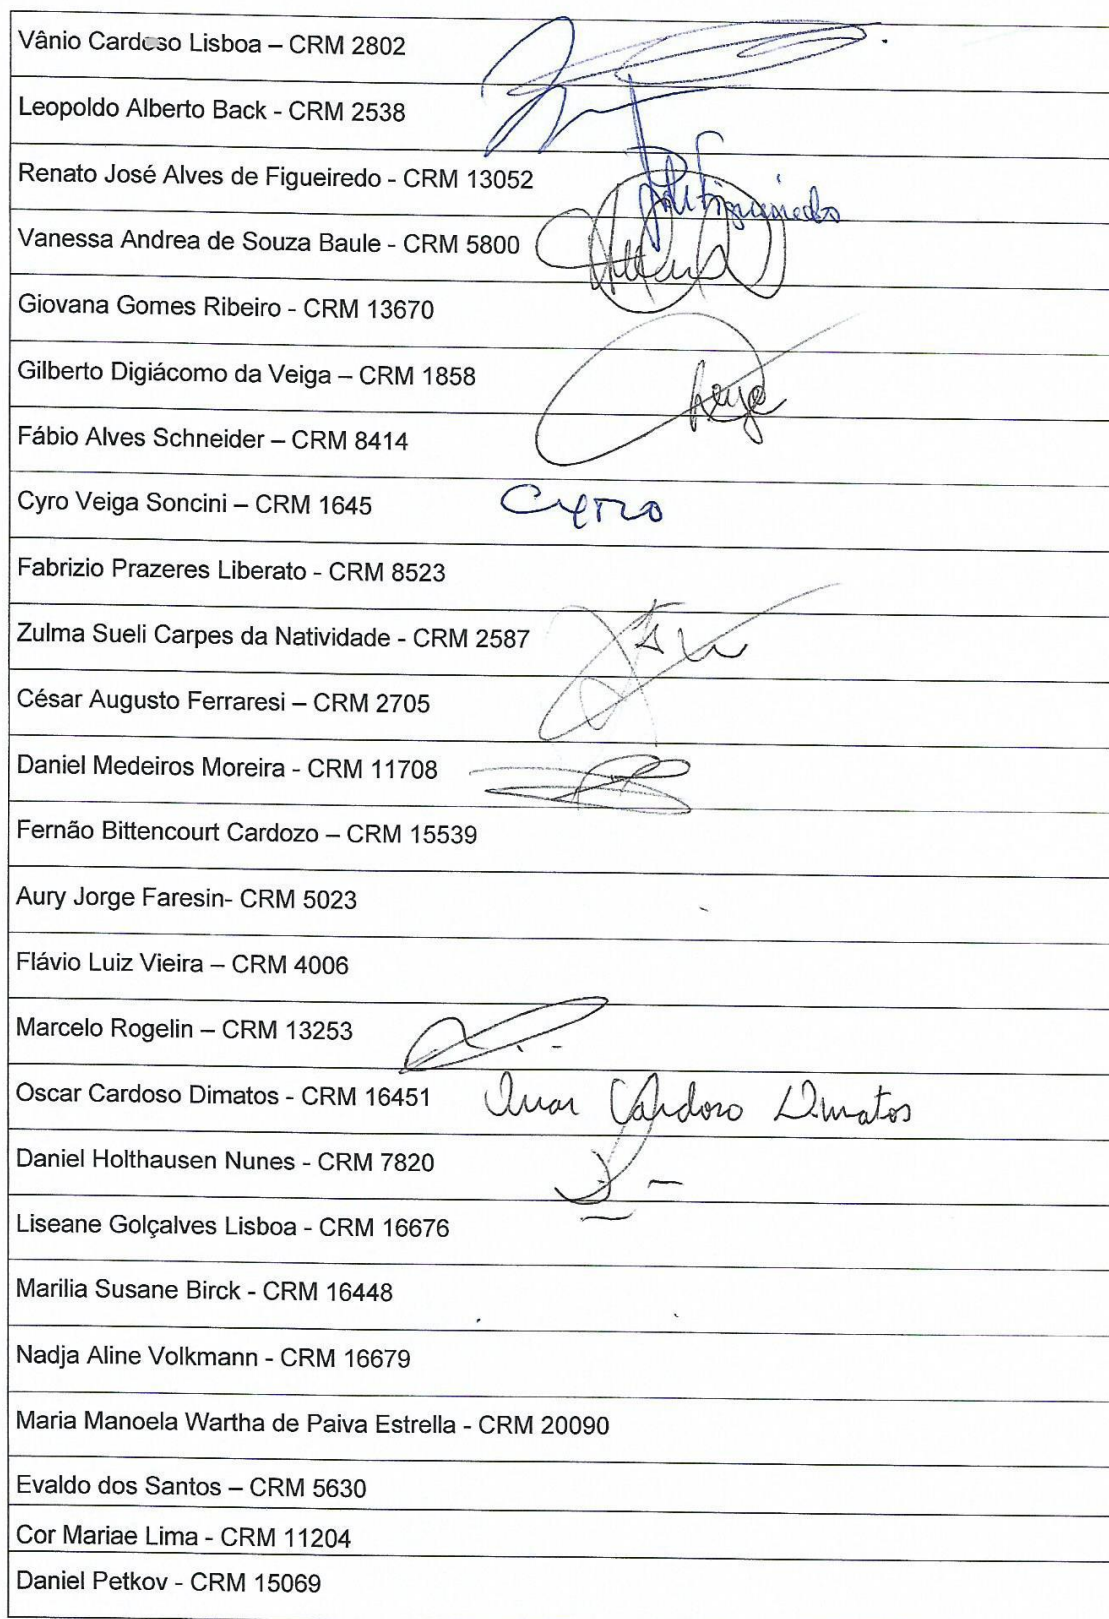 Vânio Cardoso Lisboa – CRM 2802
Leopoldo Alberto Back - CRM 2538
Renato José Alves de Figueiredo - CRM 13052
Vanessa Andrea de Souza Baule - CRM 5800
Giovana Gomes Ribeiro - CRM 13670
Gilberto Digiácomo da Veiga – CRM 1858
Fábio Alves Schneider – CRM 8414
Cyro Veiga Soncini – CRM 1645 Cyro
Fabrizio Prazeres Liberato - CRM 8523
Zulma Sueli Carpes da Natividade - CRM 2587
César Augusto Ferraresi – CRM 2705
Daniel Medeiros Moreira - CRM 11708
Fernão Bittencourt Cardozo – CRM 15539
Aury Jorge Faresin- CRM 5023
Flávio Luiz Vieira – CRM 4006
Marcelo Rogelin – CRM 13253
Oscar Cardoso Dimatos - CRM 16451 Oscar Cardoso Dimatos
Daniel Holthausen Nunes - CRM 7820
Liseane Golçalves Lisboa - CRM 16676
Marilia Susane Birck - CRM 16448
Nadja Aline Volkmann - CRM 16679
Maria Manoela Wartha de Paiva Estrella - CRM 20090
Evaldo dos Santos – CRM 5630
Cor Mariae Lima - CRM 11204
Daniel Petkov - CRM 15069